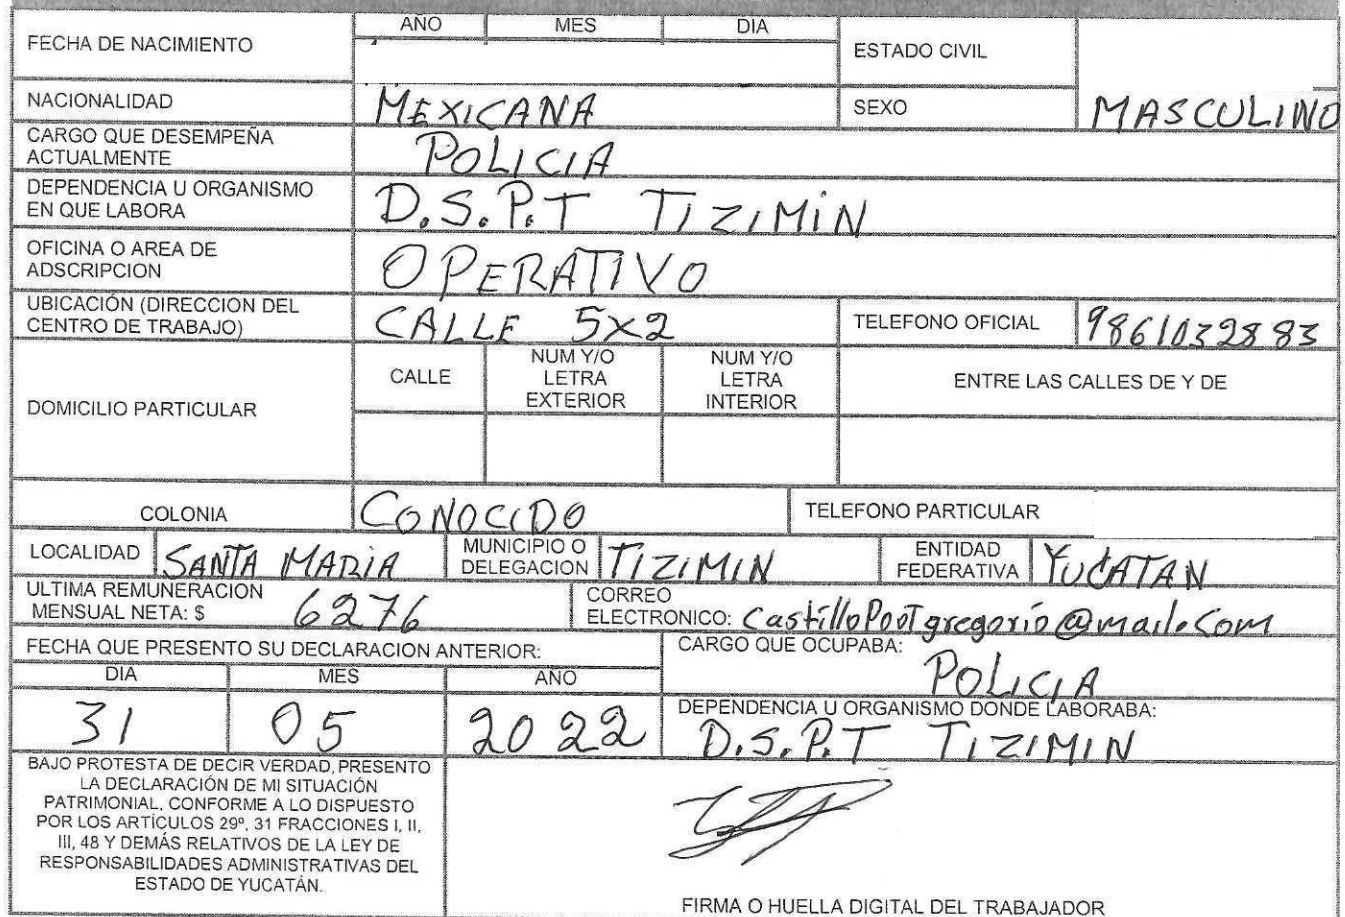 AÑO MES DIA
FECHA DE NACIMIENTO ESTADO CIVIL
NACIONALIDAD MEXICANA SEXO MASCULINO
CARGO QUE DESEMPEÑA
ACTUALMENTE POLICIA
DEPENDENCIA U ORGANISMO
EN QUE LABORA D.S.P.T TIZIMIN
OFICINA O AREA DE
ADSCRIPCION OPERATIVO
UBICACIÓN (DIRECCION DEL
CENTRO DE TRABAJO) CALLE 5x2 TELEFONO OFICIAL 9861032883
DOMICILIO PARTICULAR
CALLE
NUM Y/O
LETRA
EXTERIOR
NUM Y/O
LETRA
INTERIOR
ENTRE LAS CALLES DE Y DE
COLONIA CONOCIDO TELEFONO PARTICULAR
LOCALIDAD SANTA MARIA
MUNICIPIO O
DELEGACION TIZIMIN
ENTIDAD
FEDERATIVA YUCATAN
ULTIMA REMUNERACION
MENSUAL NETA: $ 6276
CORREO
ELECTRONICO: CastilloPootgregorio@mail.com
FECHA QUE PRESENTO SU DECLARACION ANTERIOR:
DIA MES AÑO
31 05 2022
CARGO QUE OCUPABA:
POLICIA
DEPENDENCIA U ORGANISMO DONDE LABORABA:
D.S.P.T TIZIMIN
BAJO PROTESTA DE DECIR VERDAD, PRESENTO
LA DECLARACIÓN DE MI SITUACIÓN
PATRIMONIAL, CONFORME A LO DISPUESTO
POR LOS ARTÍCULOS 29º, 31 FRACCIONES I, II,
III, 48 Y DEMÁS RELATIVOS DE LA LEY DE
RESPONSABILIDADES ADMINISTRATIVAS DEL
ESTADO DE YUCATÁN.
FIRMA O HUELLA DIGITAL DEL TRABAJADOR